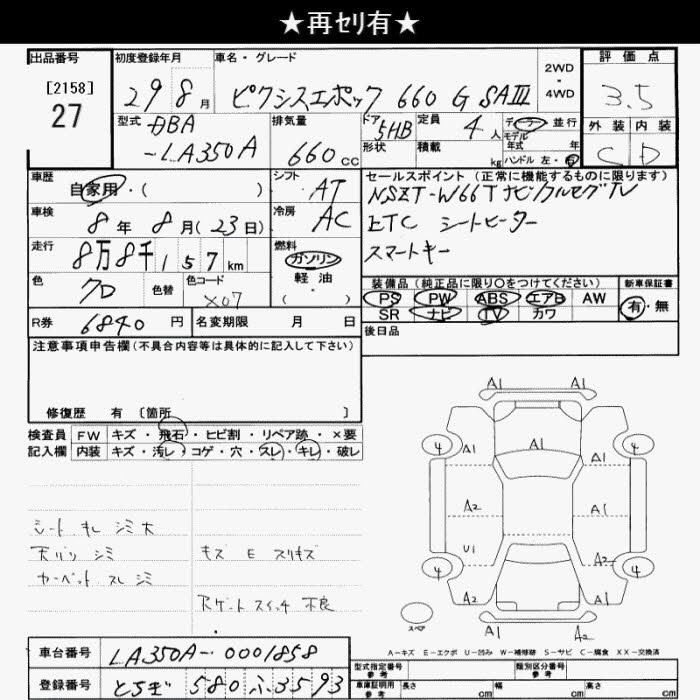 ★再ｾﾘ有★
出品番号
[2158]
27
初度登録年月
29 8月
車名・グレード
ピクシスエポック 660 G SAⅢ
2WD
・
4WD
評価点
3.5
型式
DBA
-LA350A
排気量
660cc
ドア
5HB
形状
定員
4人
積載
kg
ディーラー 並行
モデル
年式 年
ハンドル 左・右
外装 内装
C D
車歴
自家用・( )
シフト
AT
車検
8年 8月(23日)
冷房
AC
走行
8万8千157km
燃料
ガソリン
軽油
( )
色
クロ
色替
色コード
X07
R券
6840円
名変期限 月 日
セールスポイント(正常に機能するものに限ります)
NSZT-W66TナビフルセグTV
ETC シートヒーター
スマートキー
装備品(純正品に限り○をつけてください)
新車保証書
PS PW ABS エアB AW
SR ナビ TV カワ
有・無
後日品
注意事項申告欄(不具合内容等は具体的に記入して下さい)
修復歴 有 〔箇所 〕
検査員
記入欄
FW キズ・飛石・ヒビ割・リペア跡・×要
内装 キズ・汚レ・コゲ・穴・スレ・キレ・破レ
シート キレ シミ 大
天バリ シミ
カーペット スレ シミ
キズ E スリキズ
Rゲート スイッチ 不良
A1 A1
A1
4 A1 A1 4
A2 A1
U1 A2
4 4
A2 A1
A1 A2
スペア
A-キズ E-エクボ U-凹み W-補修跡 S-サビ C-腐食 XX-交換済
車台番号
LA350A-0001858
登録番号
とちぎ 580 ふ 3593
型式指定番号
参考
類別区分番号
参考
車庫証明用
参考
長さ cm 幅 cm 高さ cm